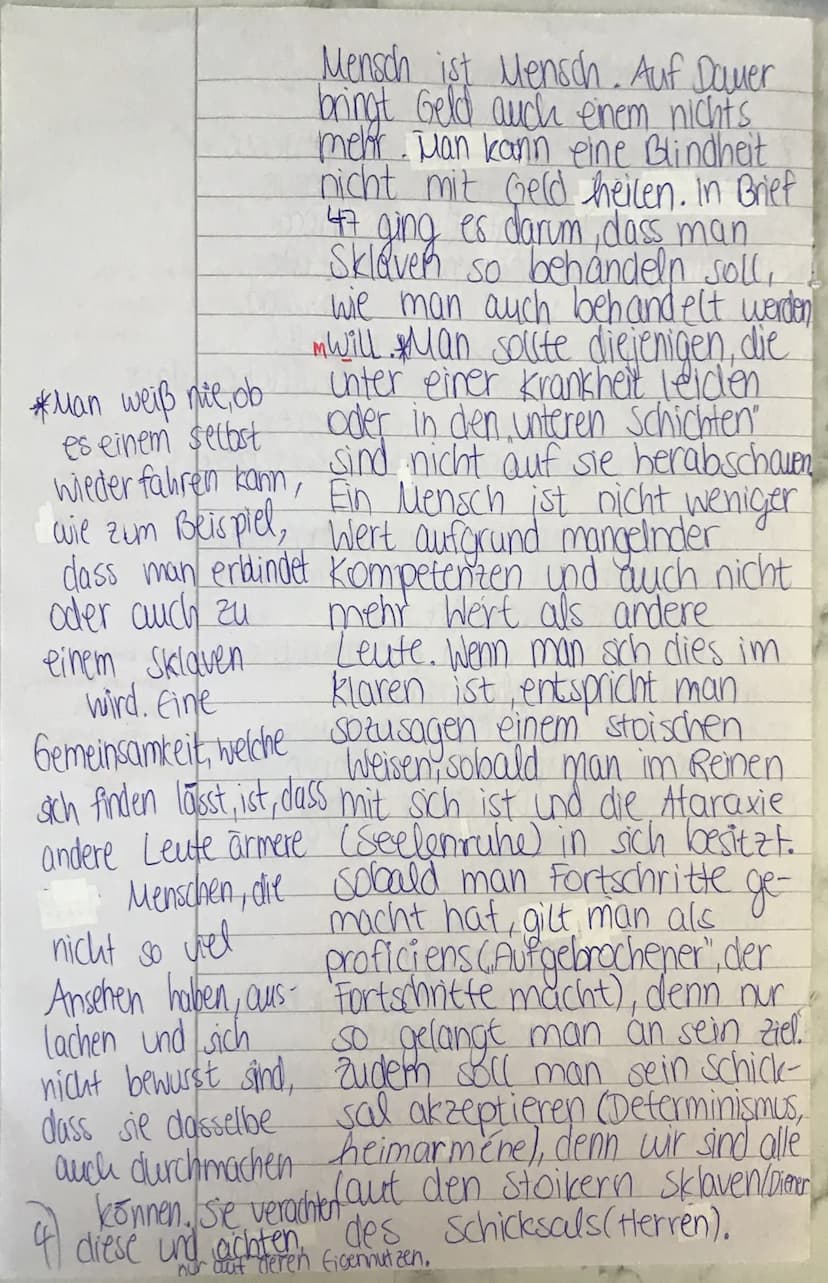 Mensch ist Mensch. Auf Dauer
bringt Geld auch einem nichts
mehr. Man kann eine Blindheit
nicht mit Geld heilen. In Brief
47 ging es darum, dass man
Sklaven so behandeln soll,
wie man auch behandelt werden
M will. *Man sollte diejenigen, die
unter einer Krankheit leiden
oder in den „unteren Schichten"
sind nicht auf sie herabschauen
Ein Mensch ist nicht weniger
Wert aufgrund mangelnder
Kompetenzen und auch nicht
mehr Wert als andere
Leute. Wenn man sch dies im
klaren ist, entspricht man
sozusagen einem stoischen
Weisen, sobald man im Reinen
mit sich ist und die Ataraxie
(Seelenruhe) in sich besitzt.
Sobald man Fortschritte ge-
macht hat, gilt man als
proficiens („Aufgebrochener", der
Fortschritte macht), denn nur
so gelangt man an sein Ziel.
Zudem soll man sein Schick-
sal akzeptieren (Determinismus,
heimarméne), denn wir sind alle
laut den Stoikern Sklaven/Diener
des Schicksals (Herren).
*Man weiß nie, ob
es einem selbst
wiederfahren kann,
wie zum Beispiel,
dass man erblindet
oder auch zu
einem Sklaven
wird. Eine
Gemeinsamkeit, welche
sich finden lässt, ist, dass
andere Leute ärmere
Menschen, die
nicht so viel
Ansehen haben, aus-
lachen und sich
nicht bewusst sind,
dass sie dasselbe
auch durchmachen
können. Sie verachten
4) diese und achten
nur auf deren Eigennutzen.